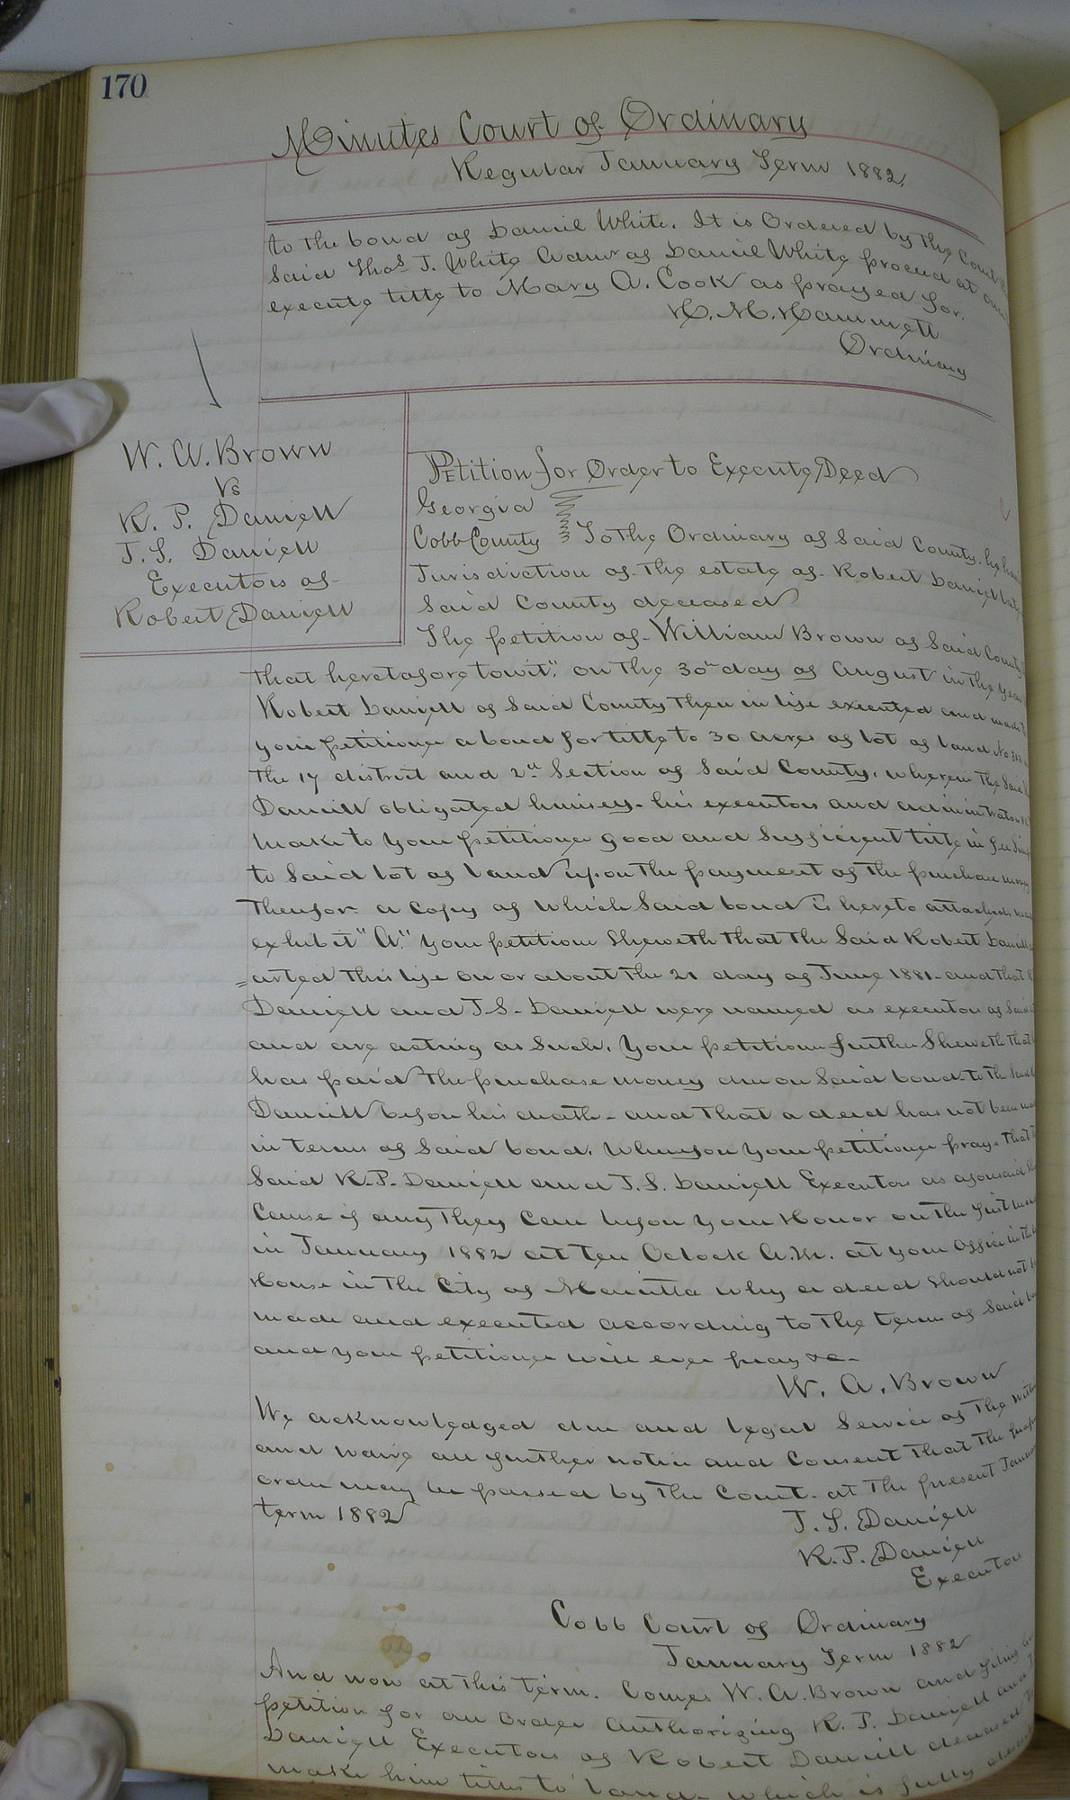 170
Minutes Court of Ordinary
Regular January Term 1882.
to the bond of Daniel White. It is Ordered by the Court
Said Thos. J. White Admr of Daniel White proceed at once
execute title to Mary A. Cook as prayed for.
H. M. Hammett
Ordinary
W. A. Brown
Vs
R. P. Daniell
J. S. Daniell
Executors of
Robert Daniell
Petition for Order to Execute Deed
Georgia
Cobb County To the Ordinary of Said County
Jurisdiction of the estate of Robert Daniell late
Said County deceased
The petition of William Brown of Said County
that heretofore towit". on the 30th day of August in the year
Robert Daniell of Said County then in life executed and made
your petitioner a bond for title to 30 acres of lot of land No
the 17 district and 2d Section of Said County, wherein the Said
Daniell obligated himself his executors and administrators
make to your petitioner good and sufficient title in fee
to Said lot of land upon the payment of the purchase money
therefor a copy of which Said bond is hereto attached
exhibit "A." Your petitioner Sheweth that the Said Robert Daniell
=arted this life on or about the 21 day of June 1881 and that
Daniell and J. S. Daniell were named as executors of Said
and are acting as Such. Your petitioner further Sheweth that
has paid the purchase money due on Said bond to the Said
Daniell before his death and that a deed has not been
in terms of Said bond. Wherefore your petitioner prays that
Said R. P. Daniell and J. S. Daniell Executors as aforesaid
Cause if any they Can before your Honor on the first
in January 1882 at ten Oclock A.M. at your office in the
House in the City of Marietta why a deed Should not
made and executed according to the terms of Said
and your petitioner will ever pray &c-
W. A. Brown
We acknowledged due and legal Service of the
and waive all further notice and Consent that the
order may be passed by the Court at the present
term 1882
J. S. Daniell
R. P. Daniell
Executors
Cobb Court of Ordinary
January Term 1882
And now at this term. Comes W. A. Brown and
petition for an order authorizing R. P. Daniell and
Daniell Executors of Robert Daniell deceased
make him titles to land which is fully